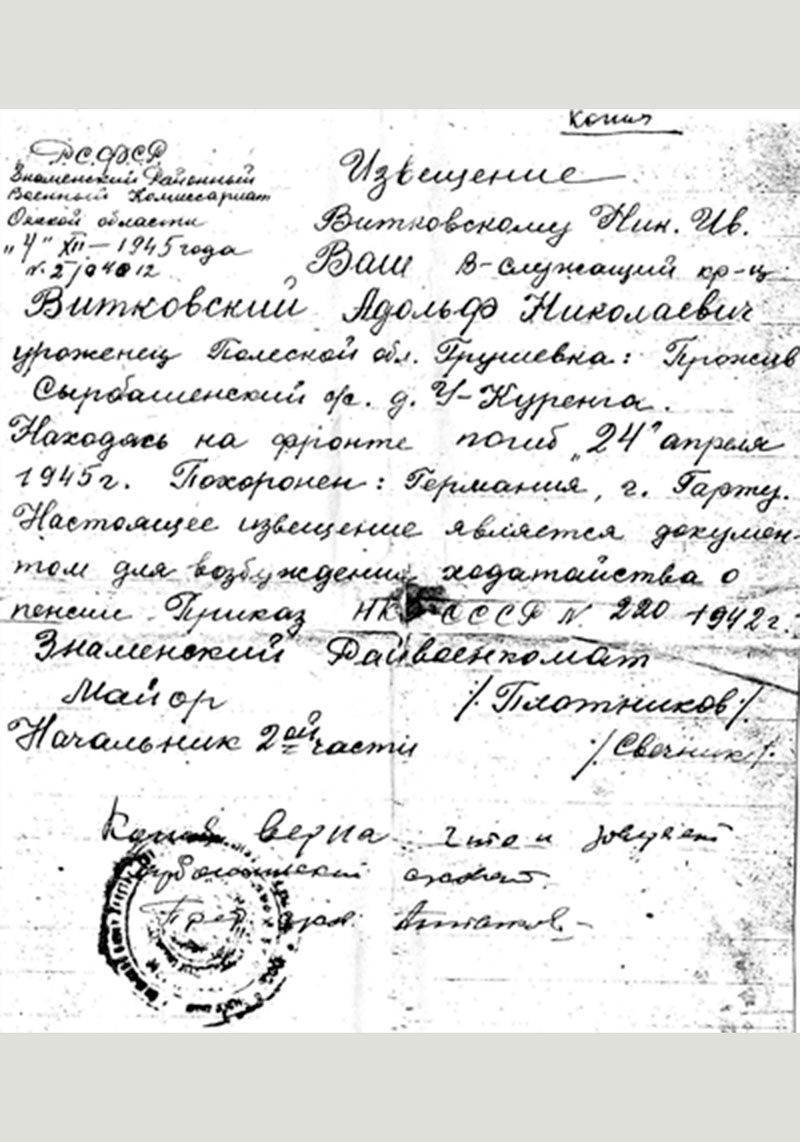 Копия
РСФСР
Знаменский Районный
Военный Комиссариат
Омской области
"4" XII – 1945 года
Извещение
Витковскому Ник. Ив.
Ваш в-служащий кр-ц
Витковский Адольф Николаевич
уроженец Полеской обл. Грушевка: Прожив
Сырбашенский с/с. д. У-Куренга.
Находясь на фронте погиб "24" апреля
1945 г. Похоронен: Германия, г. Гарту.
Настоящее извещение является докумен-
том для возбуждения ходатайства о
пенсии. Приказ НКО СССР N. 220 1942 г.
Знаменский Райвоенкомат
Майор /Плотников/.
Начальник 2ой части /Свечник/.
Копия верна что и заверяет
Пред